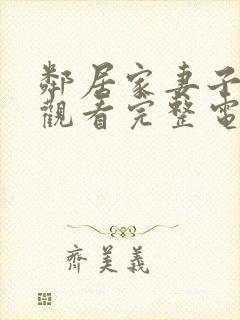 鄰居家妻子
觀看完整電
齊美義